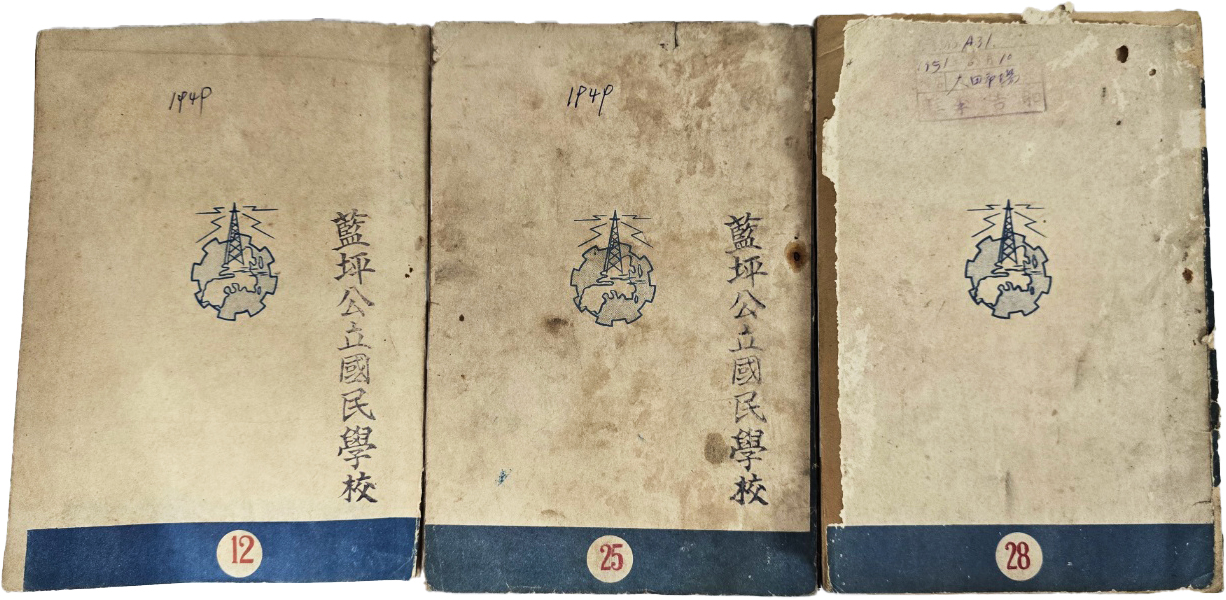 1949
藍坪公立國民學校
12
1949
藍坪公立國民學校
25
A31
大田市場
28